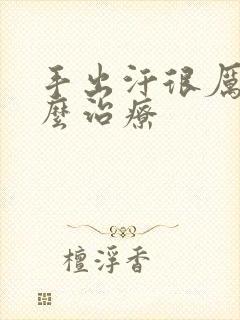 手出汗很厲
麼治療
檀浮香